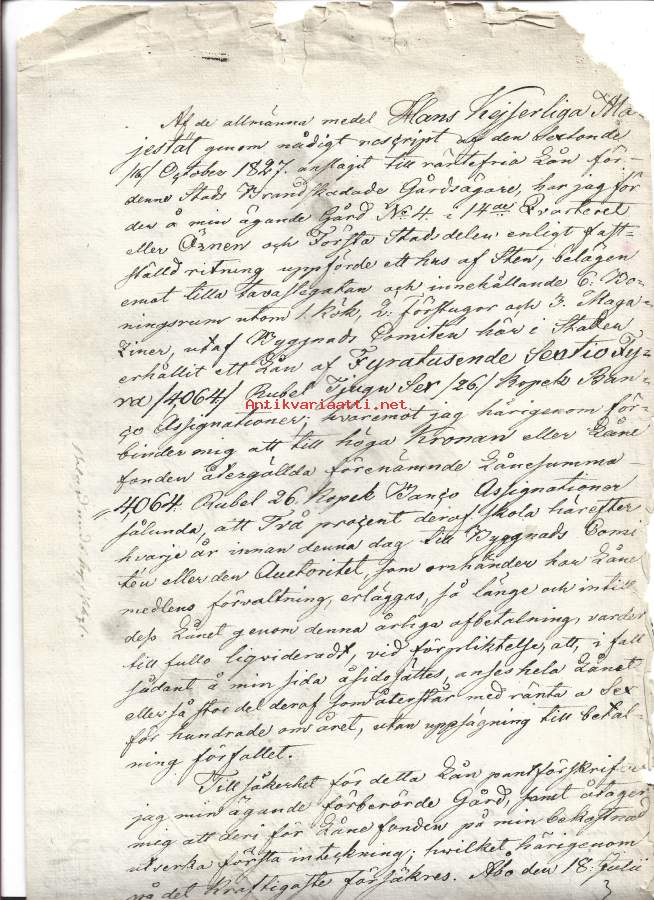 Af de allmänna medel Hans Kejserliga Ma-
jestät genom nådigt rescript af den Sextonde
/16/ October 1827. anslagit till räntefria Lån för
denne Stads Brandskadade Gårdsägare, har jag för
det å min ägande Gård No 4. i 14de Qvarteret
eller Örnen och Första Stadsdelen enligt fast-
ställd ritning uppförde ett hus af Sten, belägen
emot lilla tavastegatan och innehållande 6. Bo-
ningsrum utom 1. Kök, 2. förstugor och 3. Maga-
ziner, utaf Byggnads Comiten här i Staden
erhållit ett Lån af Fyratusende Sextio Fy-
ra /4,064/ Rubel Tjugu Sex /26/ Kopek Ban-
ço Assignationer; hvaremot jag härigenom för-
binder mig att till höga Kronan eller Låne
fonden återgällda förenämnde Lånesumma
4,064. Rubel 26. Kopek Banço Assignationer
sålunda, att Två procent deraf skola härefter
hvarje år innan denna dag till Byggnads Comi
tén eller den Auctoritet, som omhänder har Låne
medlens förvaltning, erläggas, så länge och intill
dess Lånet genom denna årliga afbetalning, varder
till fullo liqvideradt, vid förpliktelse, att, i fall
sådant å min sida åsidosättes, anses hela Lånet
eller så stor del deraf som återstår med ränta a Sex
för hundrade om året, utan uppsägning till betal-
ning förfallet.
Till säkerhet för detta Lån pantförskrifver
jag min ägande förberörde Gård, samt åtager
mig att deri för Lånefonden på min bekostnad
utverka första inteckning; hwilket härigenom
på det kraftigaste försäkres. Åbo den 18. Julii
Antikvariaatti.net